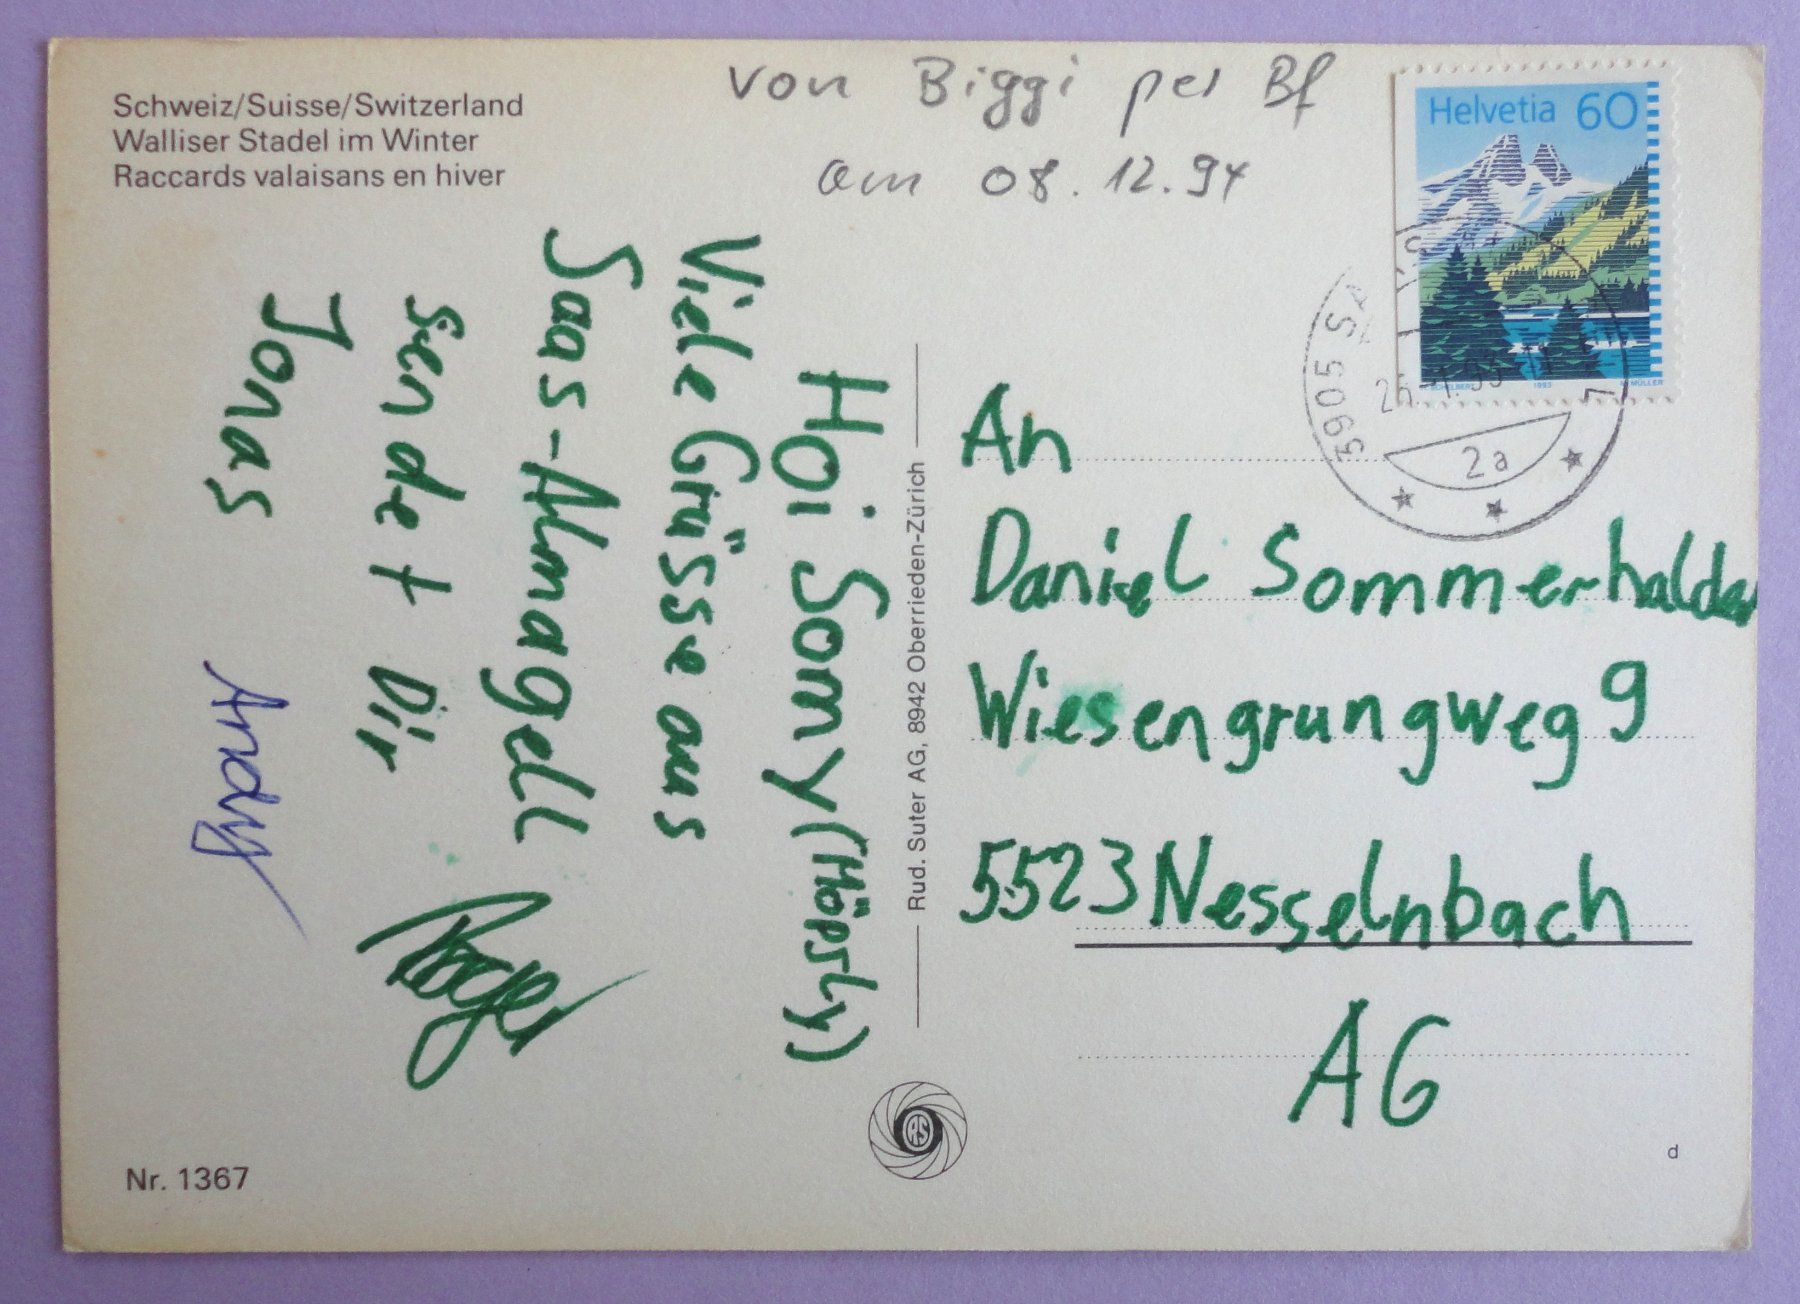 Schweiz/Suisse/Switzerland
Walliser Stadel im Winter
Raccards valaisans en hiver
von Biggi per Bf
am 08.12.94
Helvetia 60
1993
MÜLLER
3905 SA
2a
Hoi Somy (Höpsly)
Viele Grüsse aus
Saas-Almagell
sendet Dir
Jonas
Andy
Roger
Rud. Suter AG, 8942 Oberrieden-Zürich
An
Daniel Sommerhalder
Wiesengrungweg 9
5523 Nesselnbach
AG
RS
Nr. 1367
d